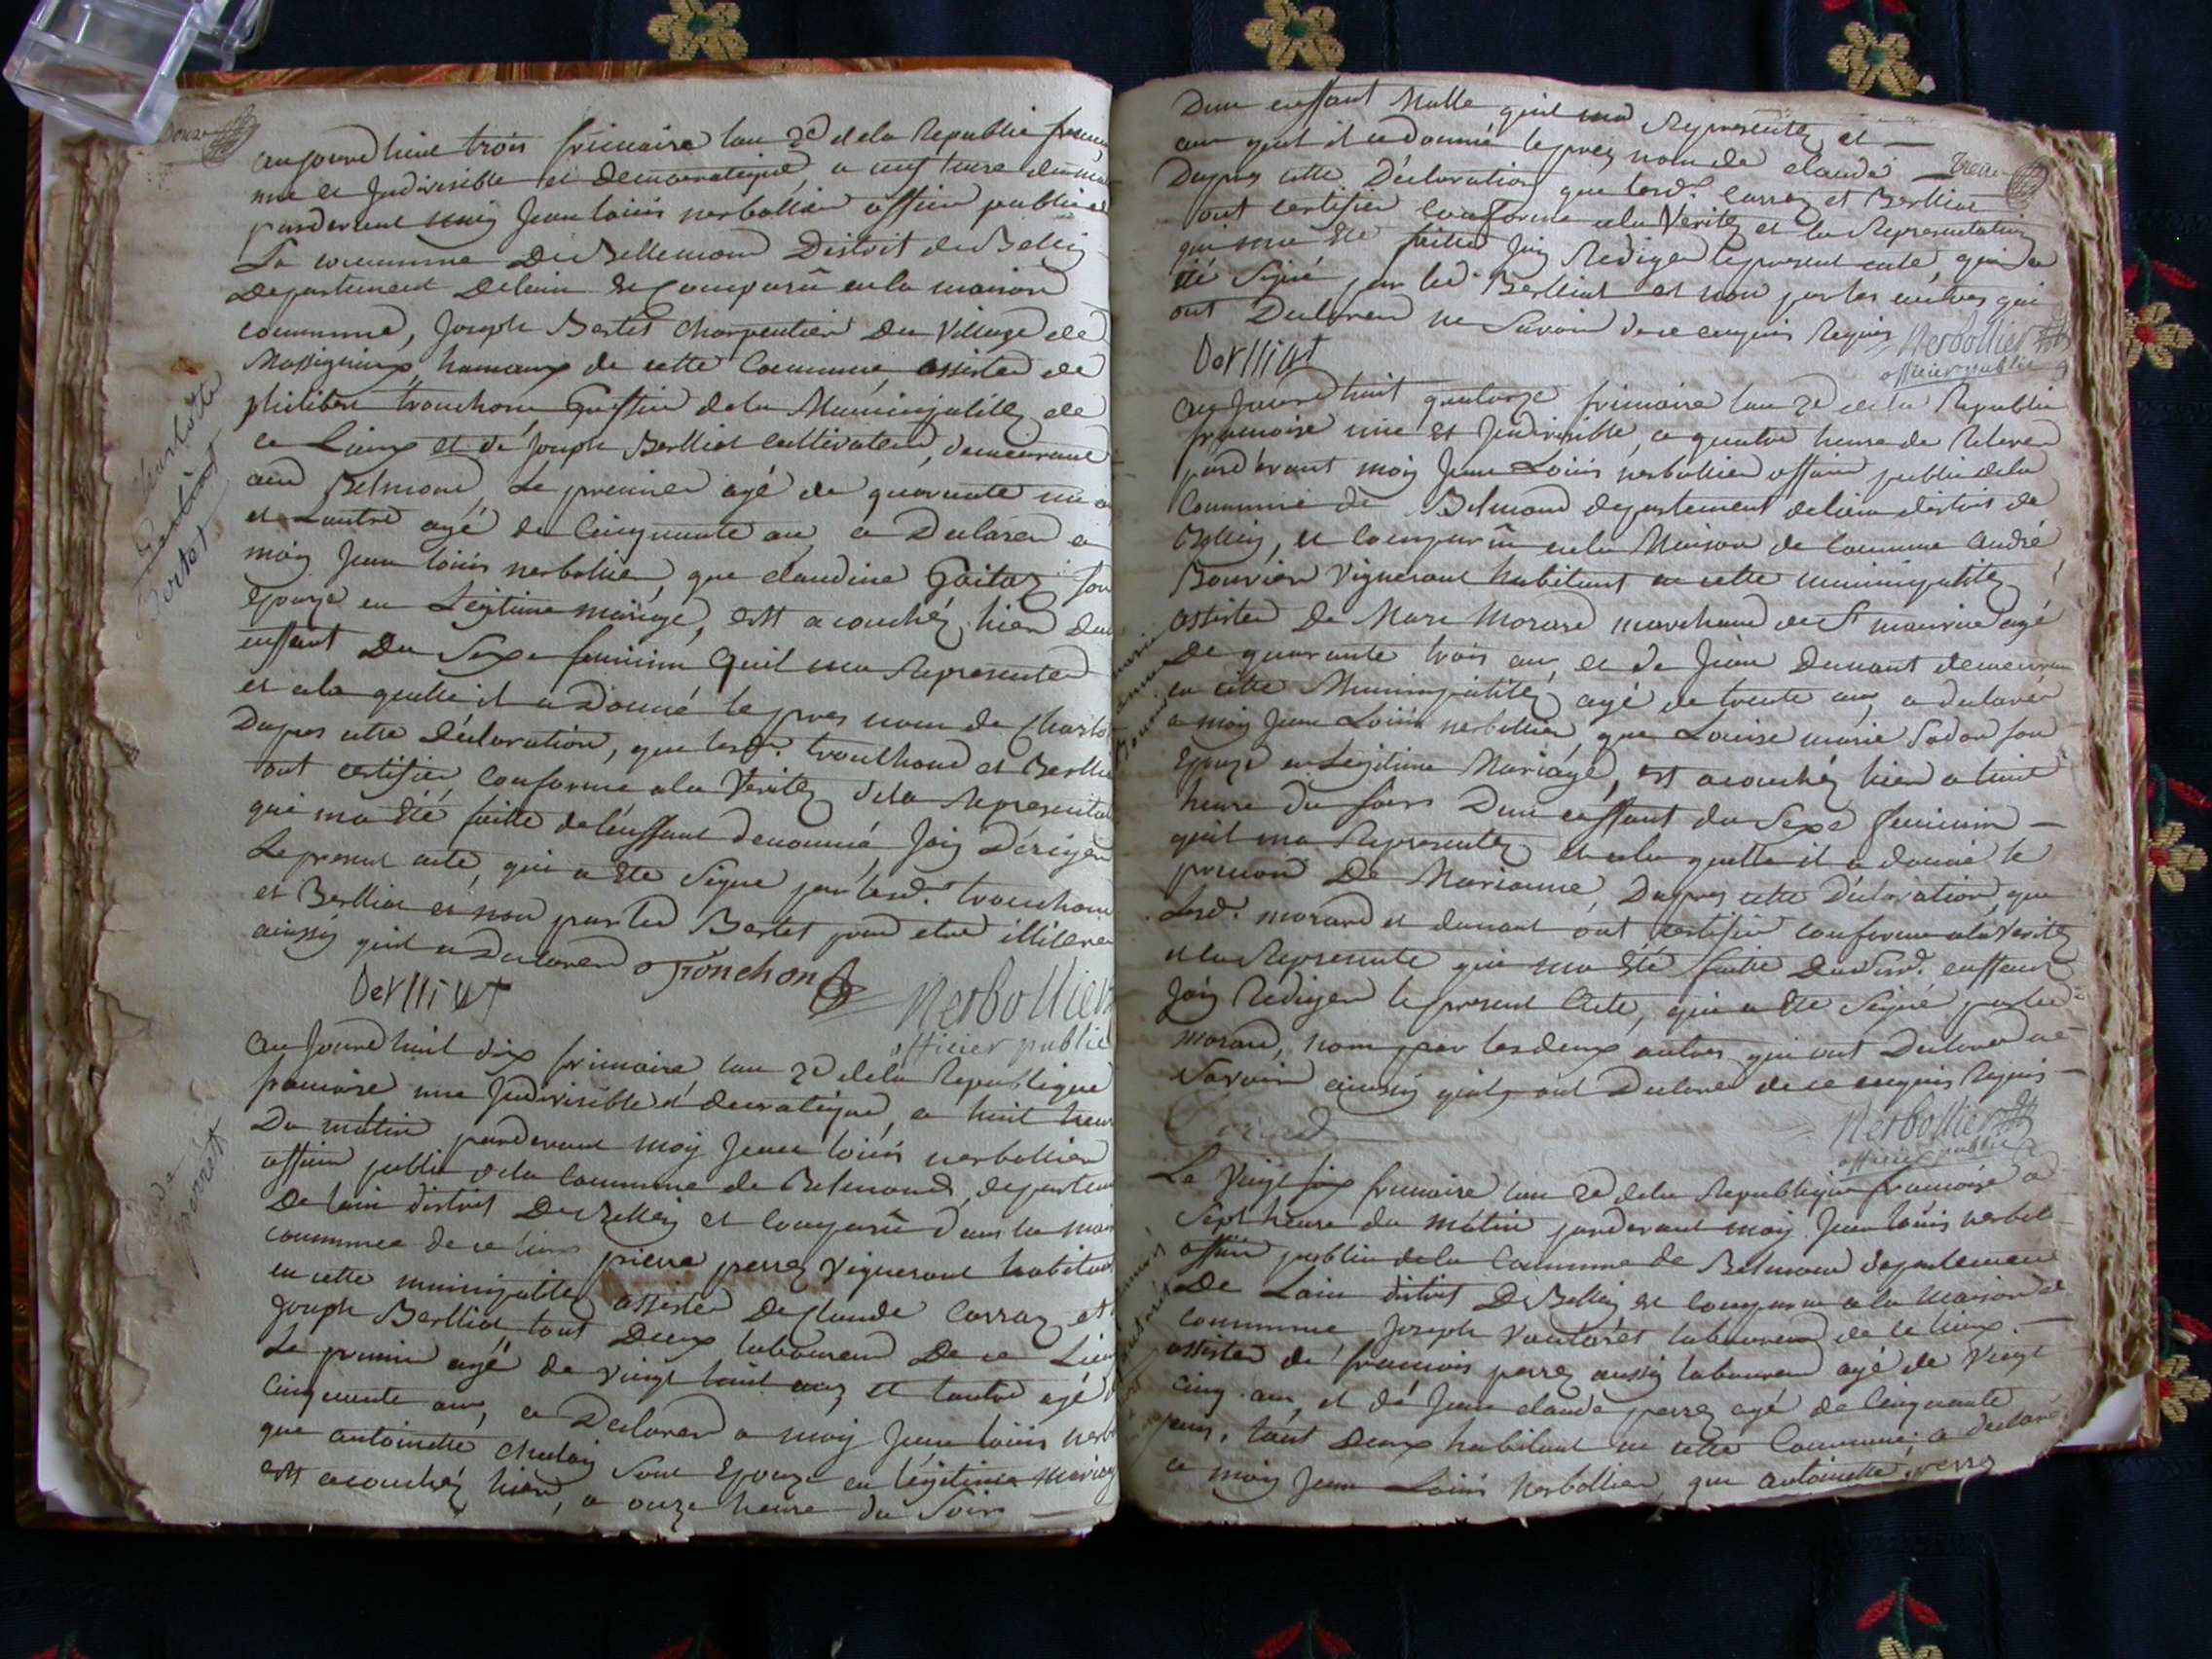 Douze
aujourdhuit trois frimaire lan 2e dela Republi
une et Indivisible et democratique, a neuf heure du
pardevant moy Jean loüis nerbollier officier public
La commune De Bellemond District de Belley
Departement Delain est comparû enla maison
commune, Joseph Bertet charpentier Du Village de
Massignieux hameaux de cette Commune assister de
philibert tronchon Greffier dela Municipalitez de
ce Lieux et de Joseph Berlliat cultivateur, demeurant
au Belmond, Le premier agé de quarante
et Lautre agé de Cinquante an a Declarer a
moy Jean loüis nerbollier, que claudine Goitaz son
epouze en Legitime mariage, est acouchéz hier
enffant Du Sexe feminin quil ma Representer
et ala quelle il a Donné le pres nom de Charlo
Dapres cette Déclaration, que lesd. tronchond et Berlli
ont certifier conforme ala Veritez dela Representa
qui ma été faitte delenffant denommé, Jay Dérigér
Le present acte, qui a été Signe par lesd. tronchon
et Berlliat et non par led Bertet pour etre illiterer
ainssy quil a Declarer
Tronchon
Berlliat
Nerbollier
officier public
aujourdhuit dix frimaire lan 2e dela Republique
francoise une Indivisible et a huit heure
Du matin pardevant moy Jean loüis nerbollier
officier public dela Commune de Belmond, departem
De lain district De Belley et Comparû dans la mais
commune de ce lieux pierre perrez Vigneront habitant
en cette municipalitez assister De Claude Carraz et
Joseph Berlliat tout Deux laboureur De ce Lieu
Le premier agé de vingt huit anz et lautre agé
Cinquante anz, a Declarer a moy Jean loüis nerb
que antoinette chaley sont Epouze en legitime mariag
est acouchéz hier, a onze heure du Soir
Charlotte
Bertet
perret
Dun enffant Malle quil ma Representez et
au quel il a donné le prez nom de claude
Treize
Dapres cette Déclaration que lesd. Carraz et Berlliat
ont certifier Conforme ala Veritez et la Representation
qui ma été faitte Jay Rediger le present acte, qui a
été Signé par led. Berlliat et non par les autres qui
ont Declarer ne Savoir de ce enquis Requis
Berlliat
Nerbollier
officier public
aujourdhuit quatorze frimaire lan 2e dela Republi
francoise une et Indivisible, a quatre heure de Relever
pardevant moy Jean Loüis nerbollier officier public dela
Commune de Belmond departement delain district de
Belley, est Comparû enla Maison de Commune andré
Bouvier Vigneront habitant en cette municipalitez
assister De Marc Morard marchand de St maurice agé
De quarante trois anz et de Jean Dunant demeurant
en cette Municipalitez agé de trente anz, a declarér
a moy Jean Loüis nerbollier, que Louise marie son
Epouze en Legitime Mariage, est acouchéz hier a huit
heure du soir Dun enffant du Sexe feminin
quil ma Representez et ala quelle il a donné le
prenom De Marianne, Dapres cette Déclaration, que
Lesd. morard et dunant ont certifier conforme ala Veritez
et la Represente qui ma été faitte Dudit enffant
Jay Rediger le present Acte, qui a été Signé par led
morard, nom par les deux autres qui ont Declarer ne
Savoir ainssy quil ont Declarer de ce enquis Requis
Nerbollier
officier public
Le Vingt six frimaire lan 2e dela Republique francoise a
Sept heure du matin pardevant moy Jean loüis nerbol
officier public dela Commune de Belmond departement
De Lain district De Belley est Comparu ala maison de
Commune Joseph Vautaret laboureur de ce lieux
assister de francois perrez aussy laboureur agé de Vingt
Cinq anz, et de Jean claude perrez agé de Cinquante
anz, tout Deux habitant en cette Commune, a declaré
a moy Jean Loüis Nerbollier, que antoinette perrez